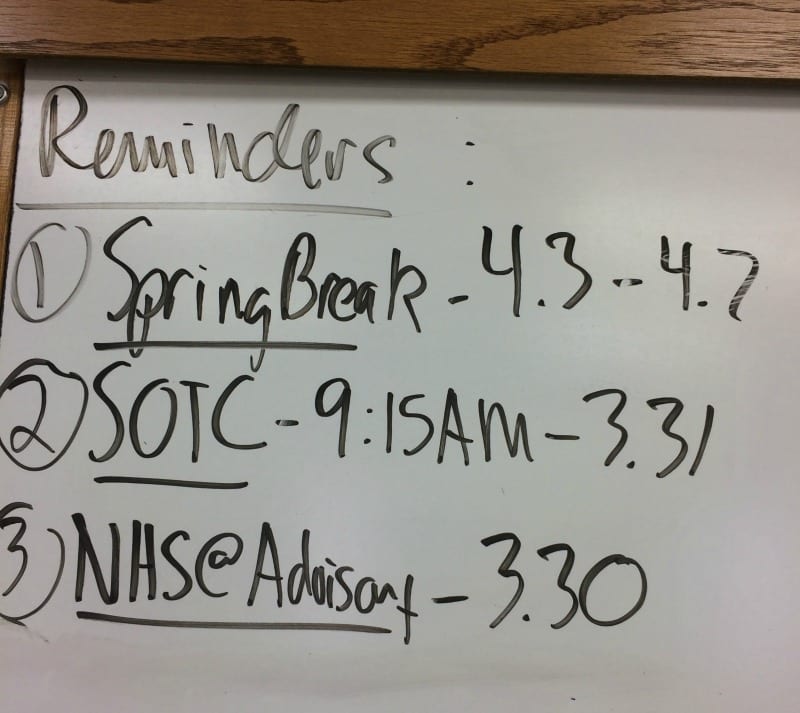 Reminders :
1 Spring Break - 4.3 - 4.7
2 SOTC - 9:15AM - 3.31
3 NHS@Advisory - 3.30